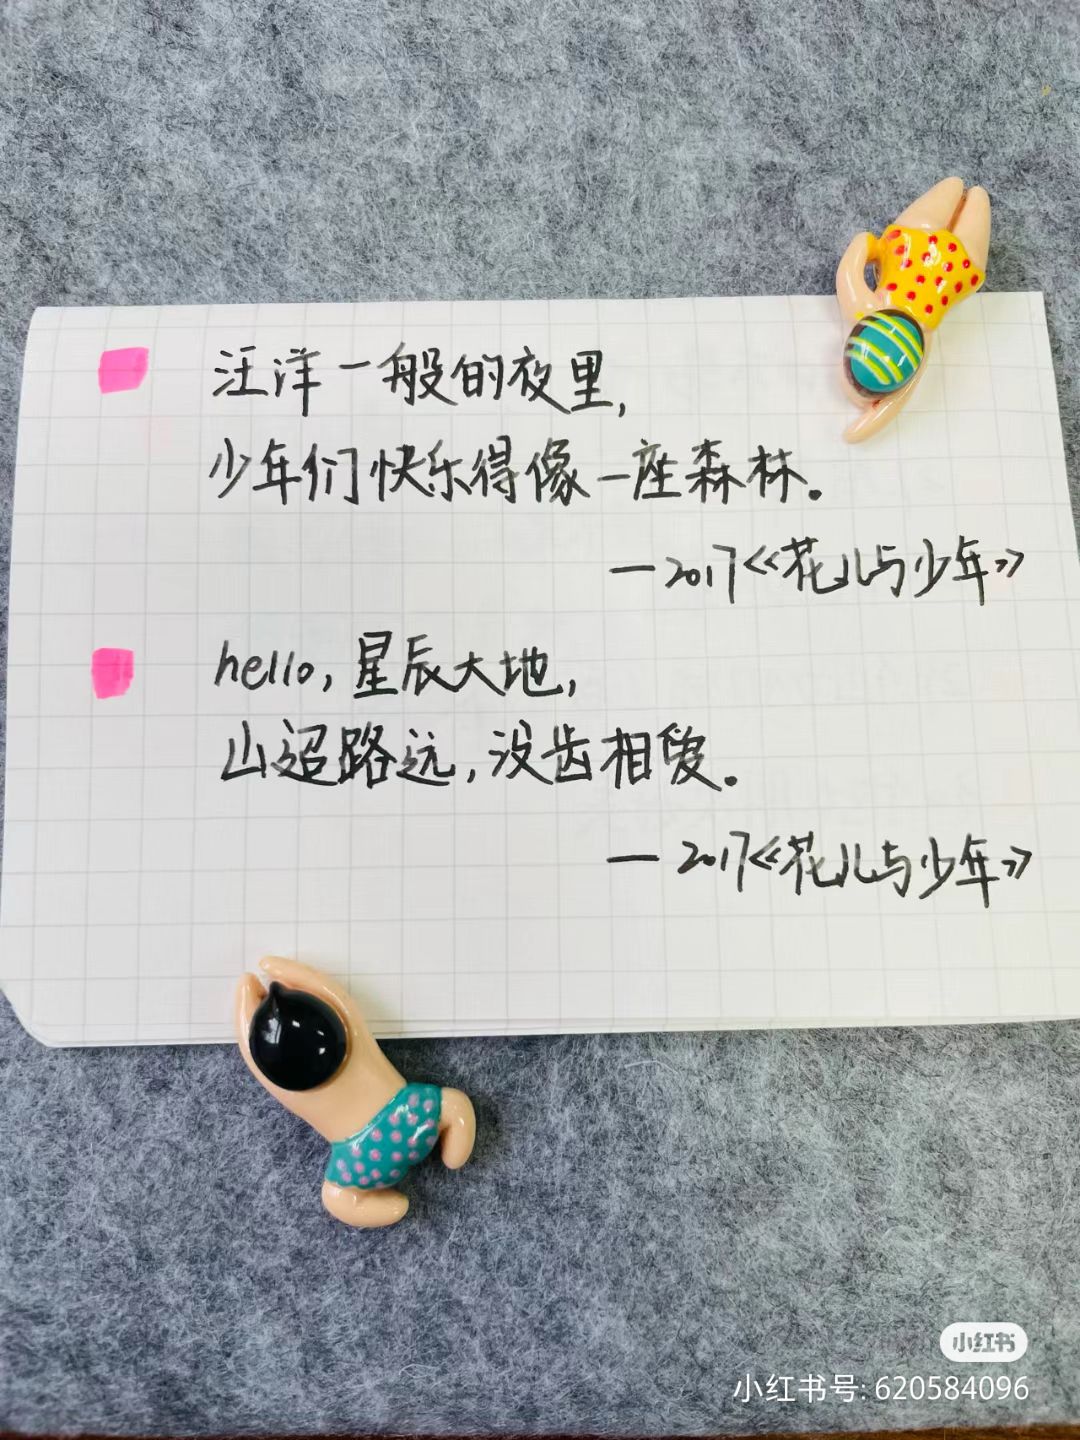 汪洋一般的夜里,
少年们快乐得像一座森林。
—2017《花儿与少年》
hello, 星辰大地,
山迢路远, 没齿相爱。
— 2017《花儿与少年》
小红书
小红书号: 620584096